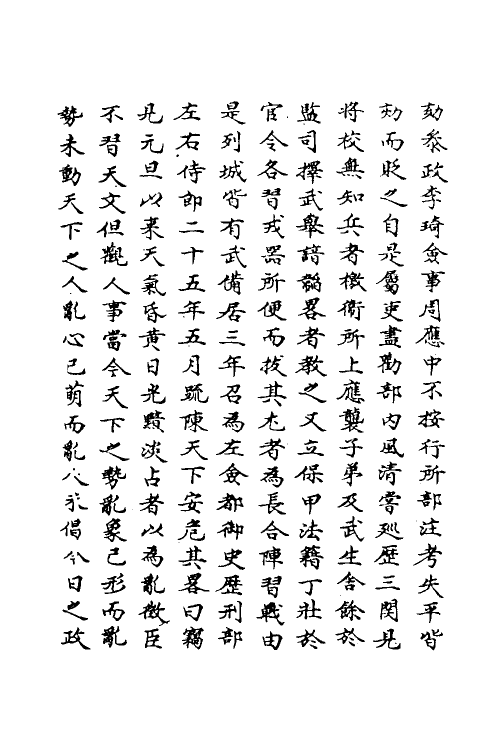 劾叅政李琦僉事周應中不按行所部注考失平皆
劾而貶之自是屬吏盡勸部内風清嘗廵歷三関見
將校無知兵者檄衛所上應襲子弟及武生舎餘於
監司擇武舉諳韜畧者教之又立保甲法籍丁壯於
官令各習戎器所便而拔其尤者為長合陣習戰由
是列城皆有武備居三年召為左僉都御史歷刑部
左右侍郎二十五年五月䟽陳天下安危其畧曰竊
見元旦以來天氣昏黄日光黯淡占者以為亂徴臣
不習天文但觀人事當今天下之勢亂象已形而亂
勢未動天下之人亂心已萌而亂人未倡今日之政